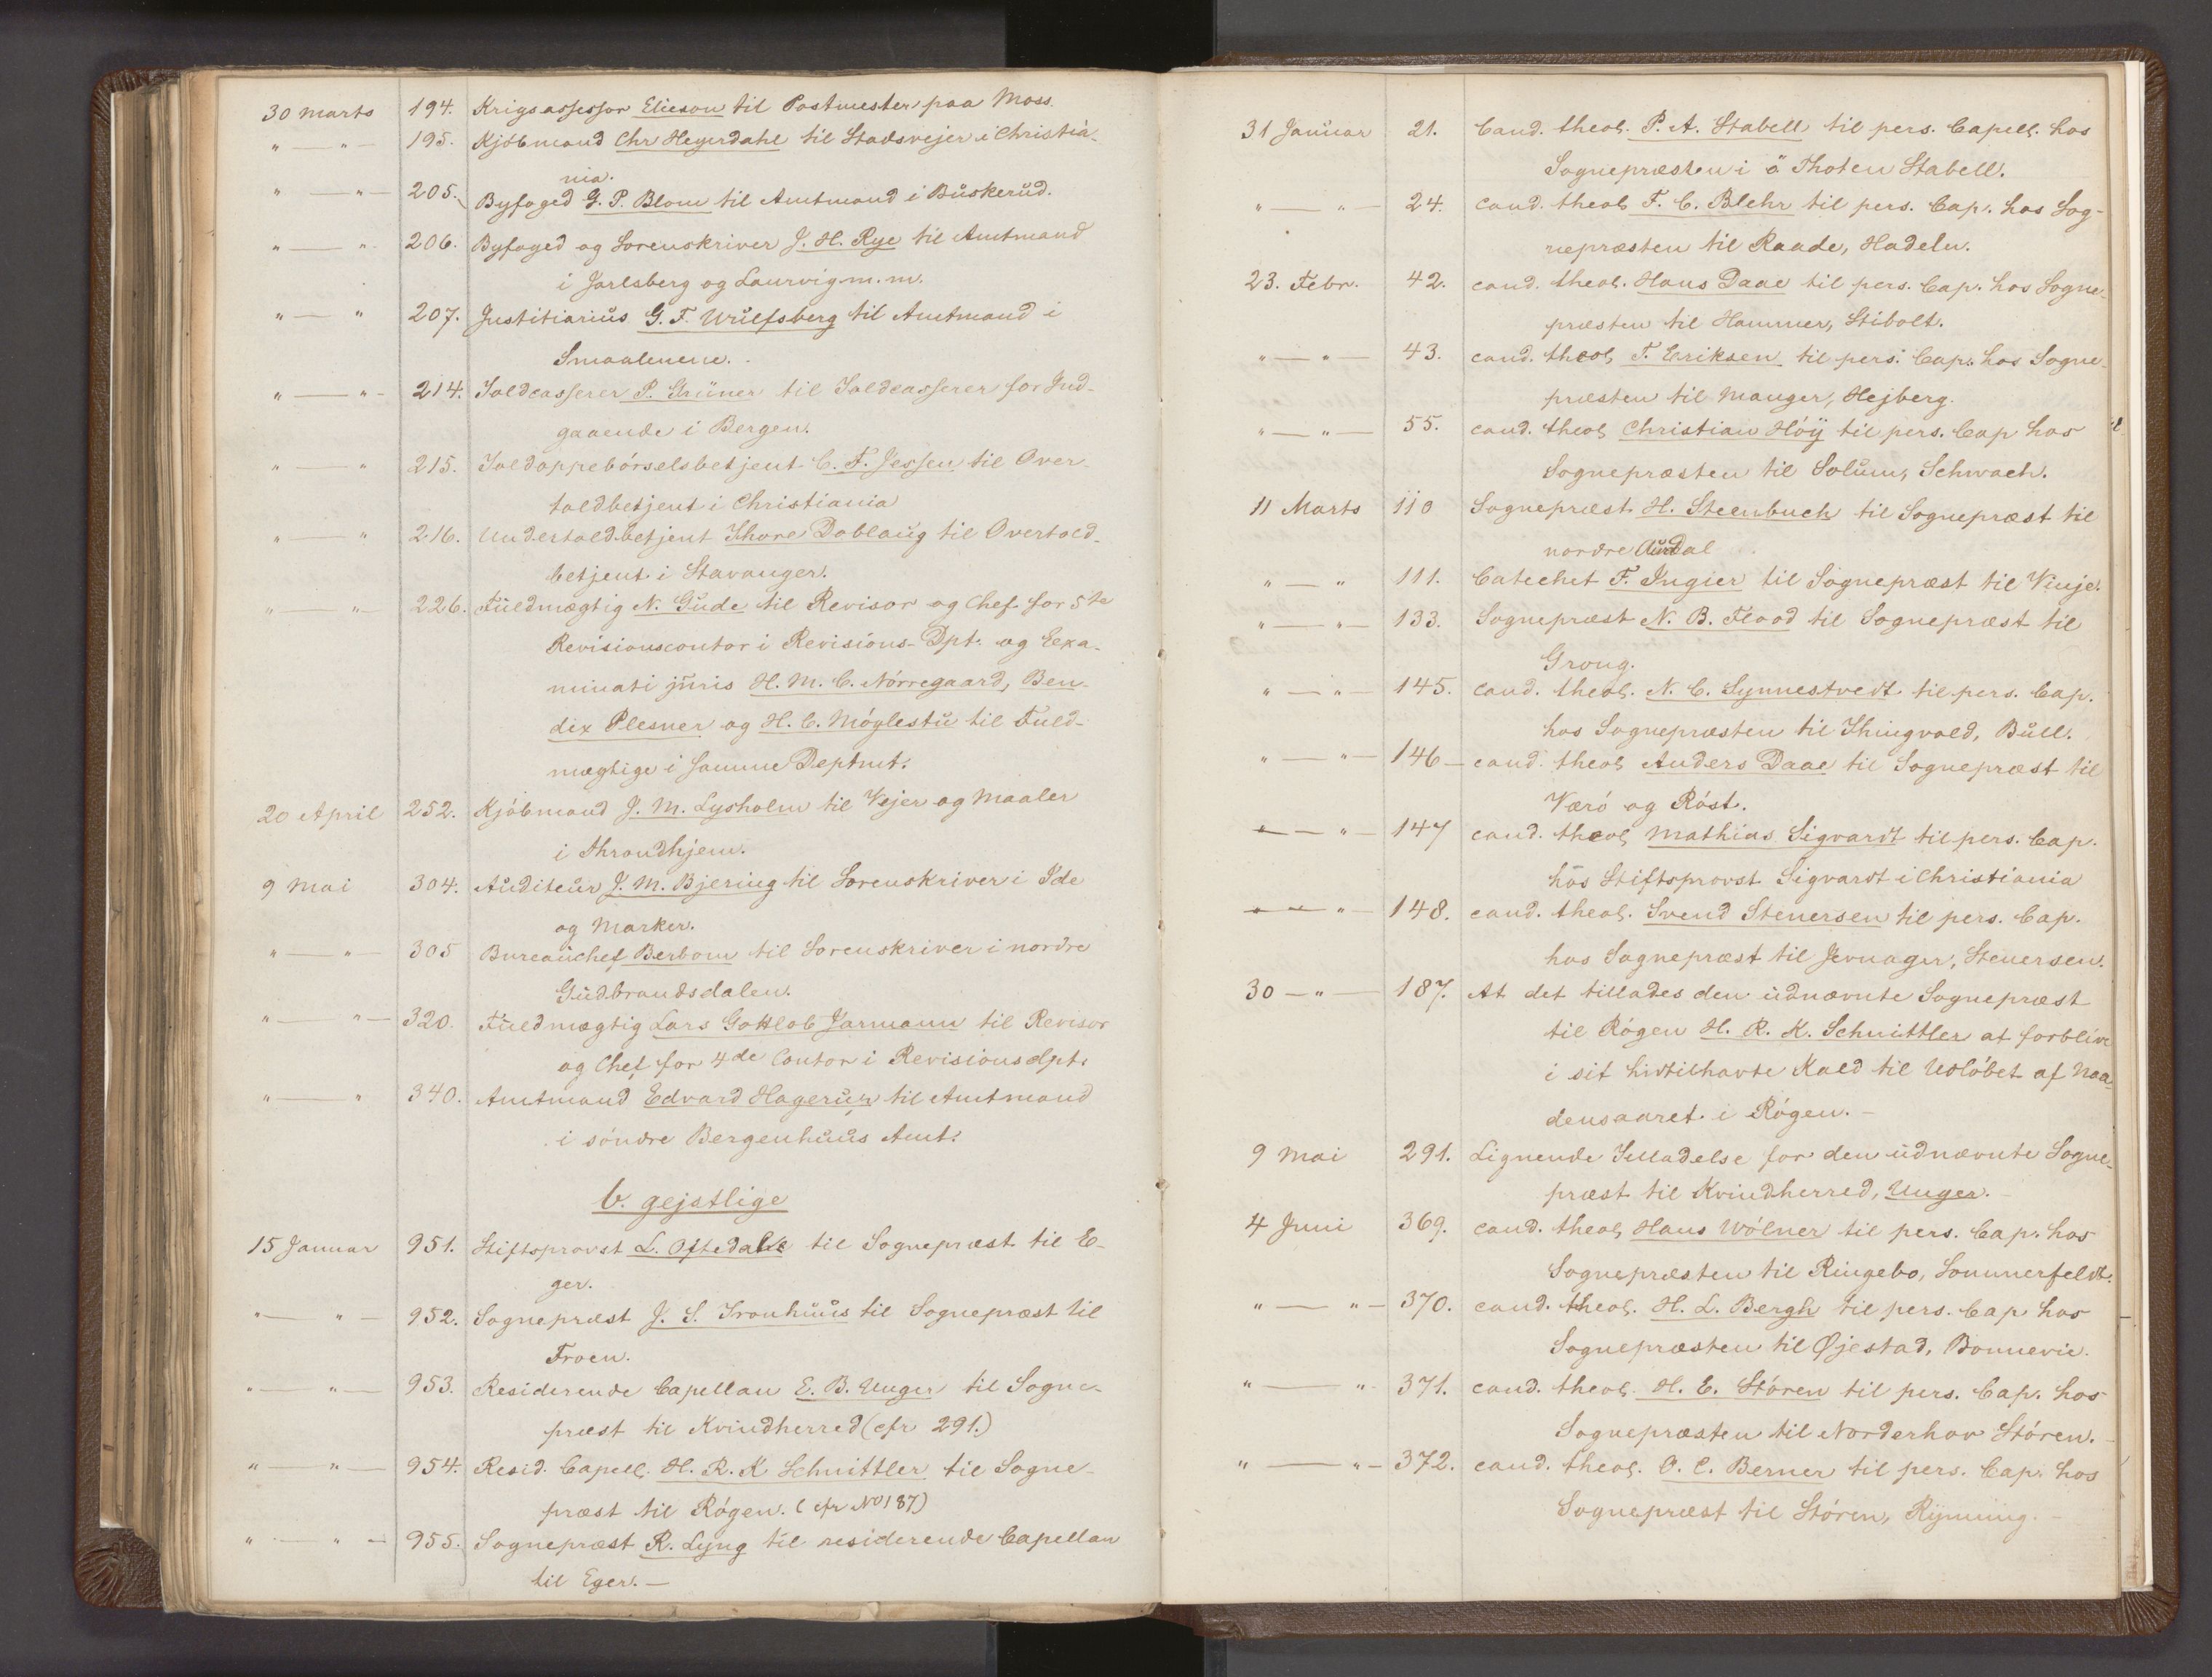 30 Marts 194. Krigsassessor Elieson til Postmester paa Moss.
" — " — 195. Kjöbmand Chr Heyerdahl til Stadsvejer i Christia-
nia.
" — " — 205. Byfoged G. P. Blom til Amtmand i Buskerud.
" — " 206. Byfoged og Sorenskriver J. H. Rye til Amtmand
i Jarlsberg og Laurvig m. m.
" — " 207. Justitiarius G. F. Wulfsberg til Amtmand i
Smaalenene.
" — " - 214. Toldcasserer P. Grüner til Toldcasserer for Ind-
gaaende i Bergen.
" — " 215. Toldoppebörselsbetjent C. F. Jessen til Over-
toldbetjent i Christiania
" — " 216. Undertoldbetjent Thore Doblaug til Overtold-
betjent i Stavanger.
" — " - 226. Fuldmægtig N. Gude til Revisor og Chef for 5te
Revisionscontor i Revisions-Dpt. og Exa-
minati juris H. M. C. Nörregaard, Ben-
dix Plesner og H. C. Möglestu til Fuld-
mægtige i samme Deptmt.
20 April 252. Kjöbmand J. M. Lysholm til Vejer og Maaler
i Throndhjem.
9 Mai 304. Auditeur J. M. Bjering til Sorenskriver i Ide
og Marker.
" — " - 305 Bureauchef Berbom til Sorenskriver i nordre
Gudbrandsdalen.
" — " — 320. Fuldmægtig Lars Gottlob Jarmann til Revisor
og Chef for 4de Contor i Revisionsdpt.
" — " 340. Amtmand Edvard Hagerup til Amtmand
i söndre Bergenhuus Amt.
b. gejstlige
15 Januar 951. Stiftsprovst L. Oftedahl til Sognepræst til E-
ger.
" — " — 952. Sognepræst J. S. Tronhuus til Sognepræst til
Froen.
" — " — 953. Residerende Capellan E. B. Unger til Sogne-
præst til Kvindherred (cfr 291.)
" — " — 954. Resid. Capell. H. R. K Schnittler til Sogne-
præst til Rögen. (cfr No 187)
" — " — 955. Sognepræst R. Lyng til residerende Capellan
til Eger. —
31 Januar 21. Cand. theol. P. A. Stabell til pers. Capell. hos
Sognepræsten i ö Thoten Stabell.
" — " — 24. Cand. theol F. C. Blehr til pers. Cap. hos Sog-
nepræsten til Raade, Hadeln.
23. Febr. 42. cand. theol. Hans Daae til pers. Cap. hos Sogne-
præsten til Hammer, Stibolt.
" — " — 43. cand. theol F. Eriksen til pers. Cap. hos Sogne-
præsten til Manger, Hejberg.
" — " — 55. cand. theol Christian Höÿ til pers. Cap hos
Sognepræsten til Solum, Schwach.
11 Marts 110 Sognepræst H. Steenbuch til Sognepræst til
nordre Aurdal
" — " 111. Catechet F. Ingier til Sognepræst til Vinje.
" — " — 133. Sognepræst N. B. Flood til Sognepræst til
Grong.
" — " — 145. cand. theol. N. C. Synnestvedt til pers. Cap.
hos Sognepræsten til Thingvold, Bull.
" — " — 146 — cand. theol Anders Daae til Sognepræst til
Værö og Röst.
" — " — 147 cand. theol Mathias Sigvardt til pers. Cap.
hos Stiftsprovst Sigvardt i Christiania
" — " — 148. cand. theol. Svend Stenersen til pers. Cap.
hos Sognepræst til Jevnager, Stenersen.
30 — " — 187. At det tillades den udnævnte Sognepræst
til Rögen H. R. K. Schnittler at forblive
i sit hidtilhavte Kald til Udlöbet af Naa
densaaret i Rögen. —
9 Mai 291. Lignende Tilladelse for den udnævnte Sogne-
præst til Kvindherred, Unger. —
4 Juni 369. cand. theol Hans Wölner til pers. Cap. hos
Sognepræsten til Ringebo, Sommerfeldt.
" — " — 370. cand. theol. H. L. Bergh til pers. Cap hos
Sognepræsten til Øjestad, Bonnevie.
" — " - 371. cand. theol. H. E. Stören til pers. Cap. hos
Sognepræsten til Norderhov Stören. —
" — " — 372. cand. theol. O. C. Berner til pers. Cap. hos
Sognepræst til Stören, Rynning. —